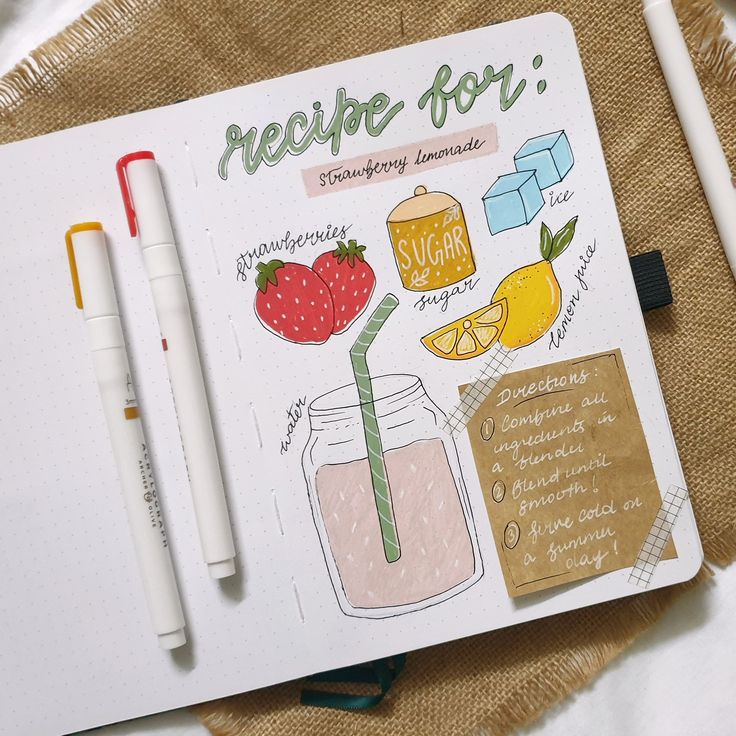 recipe for:
strawberry lemonade
strawberries
SUGAR
sugar
ice
lemon juice
water
Directions:
1 Combine all
ingredients in
a blender
2 Blend until
smooth!
3 Sirve cold on
a summer
day!
ACRYLOGRAPH
ARCHER & OLIVE